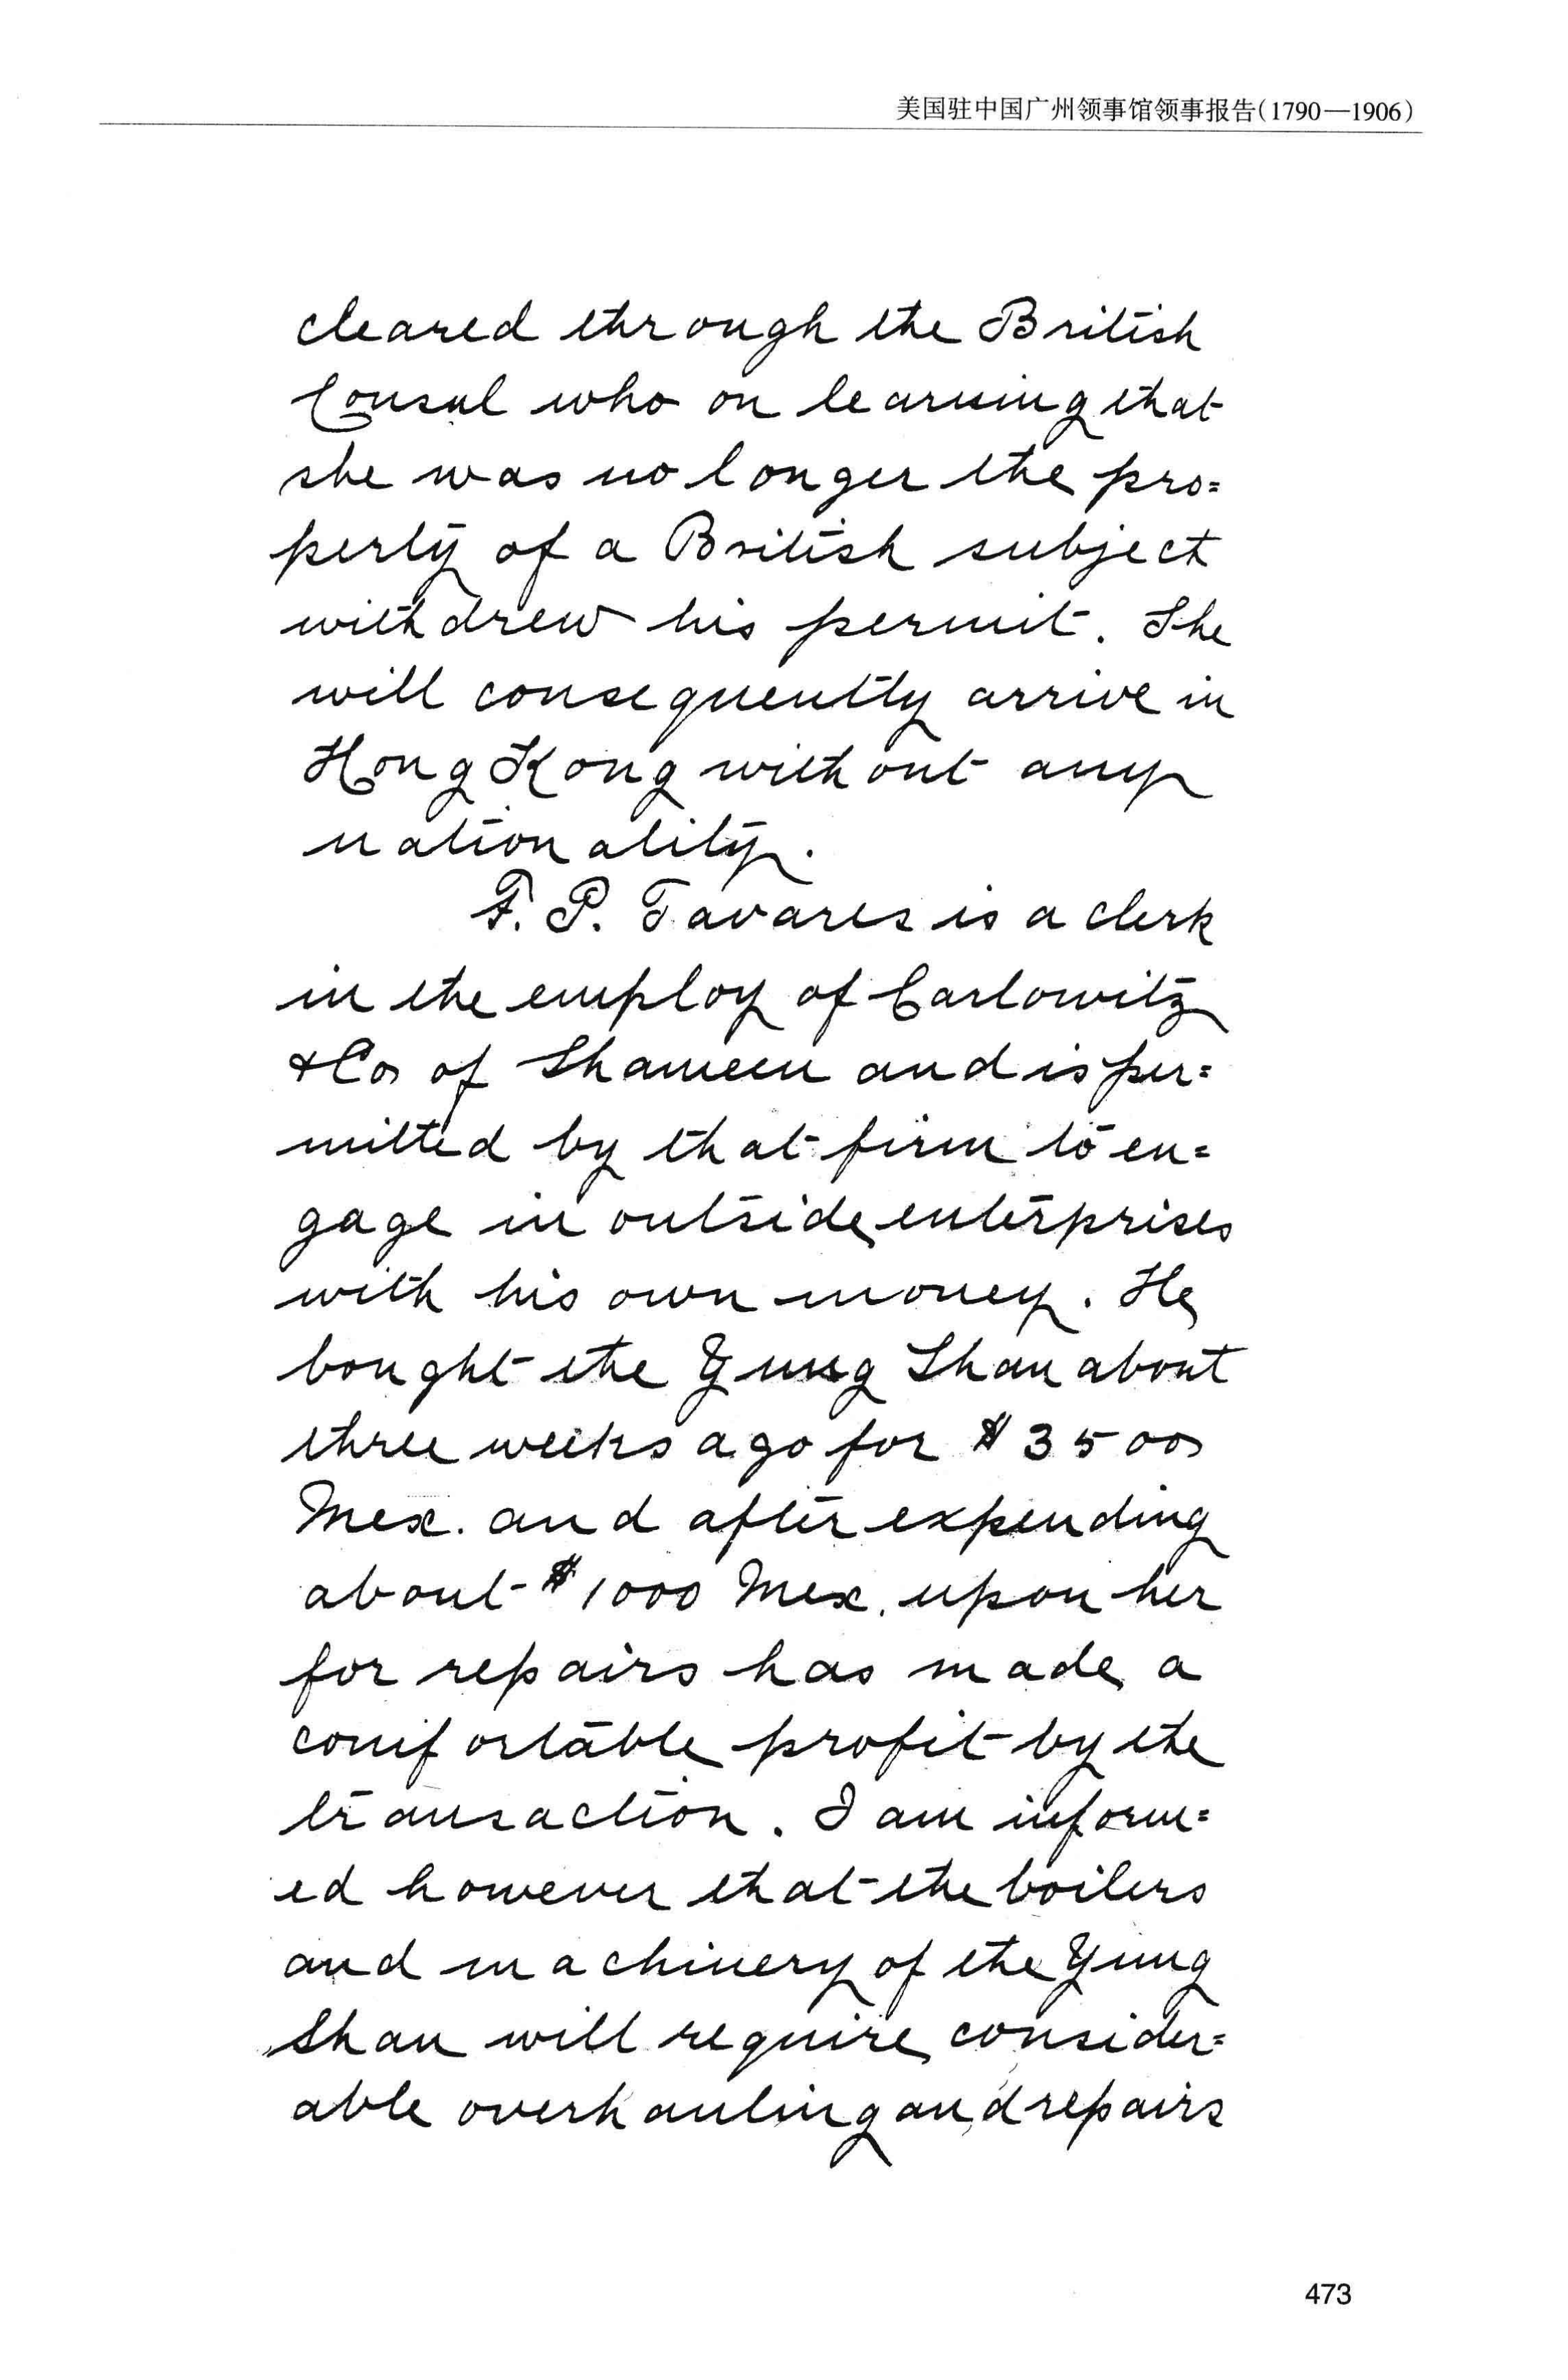 美国驻中国广州领事馆领事报告(1790—1906)
cleared through the British
Consul who on learning that
she was no longer the pro=
perty of a British subject
withdrew his permit. She
will consequently arrive in
Hong Kong without any
nationality.
F. P. Tavares is a clerk
in the employ of Carlowitz
& Co of Shameen and is per=
mitted by that firm to en=
gage in outside enterprises
with his own money. He
bought the Yung Shan about
three weeks ago for $3500
Mex. and after expending
about $1000 Mex. upon her
for repairs has made a
comfortable profit by the
transaction. I am inform=
ed however that the boilers
and machinery of the Yung
Shan will require consider=
able overhauling and repairs
473